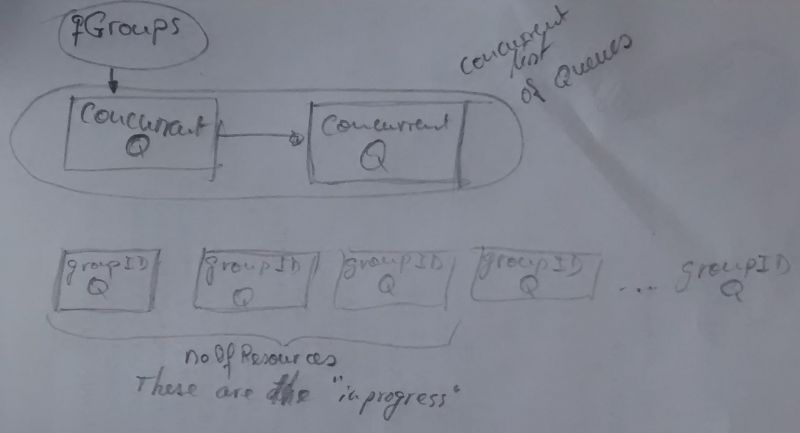 qGroups
Concurrent
list
of Queues
Concurrent
Q
Concurrent
Q
groupID
Q
groupID
Q
groupID
Q
groupID
Q
... groupID
Q
noOfResources
These are the "inprogress"